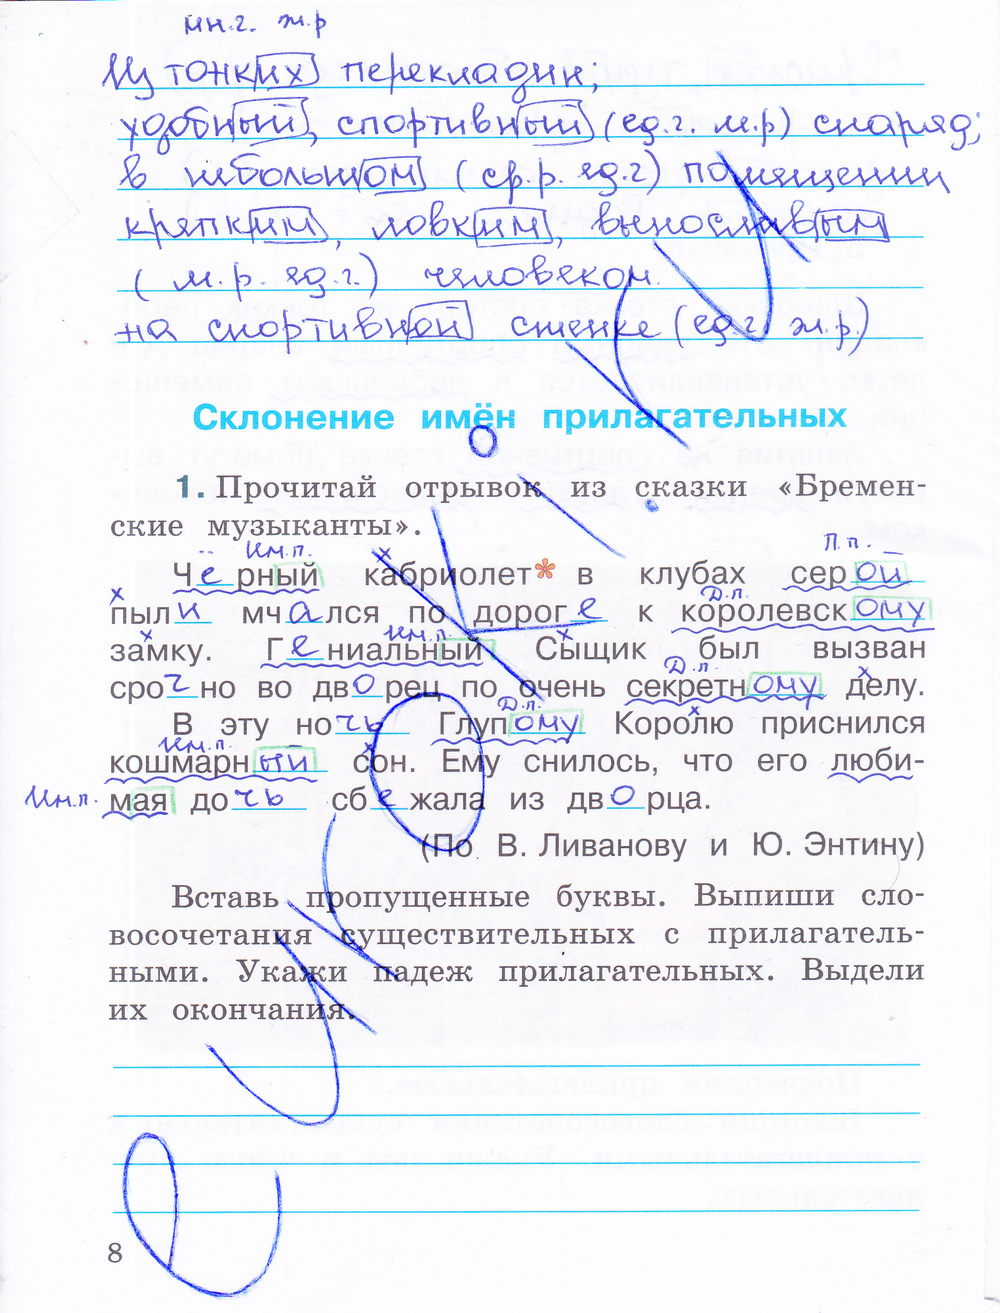 мн.г. ж.р
Из тонких перекладин;
удобный, спортивный (ед.г. м.р) снаряд;
в небольшом (ср.р. ед.г) помещении
крепким, ловким, выносливым
(м.р. ед.г.) человеком.
на спортивной стенке (ед.г. ж.р.)
Склонение имён прилагательных
1. Прочитай отрывок из сказки «Бремен-
ские музыканты».
Им.п. П.п.
Чёрный кабриолет* в клубах серой
Д.п.
пыли мчался по дороге к королевскому
Им.п.
замку. Гениальный Сыщик был вызван
Д.п.
срочно во дворец по очень секретному делу.
Д.п.
В эту ночь Глупому Королю приснился
Им.п.
кошмарный сон. Ему снилось, что его люби-
Им.п. мая дочь сбежала из дворца.
(По В. Ливанову и Ю. Энтину)
Вставь пропущенные буквы. Выпиши сло-
восочетания существительных с прилагатель-
ными. Укажи падеж прилагательных. Выдели
их окончания.
8